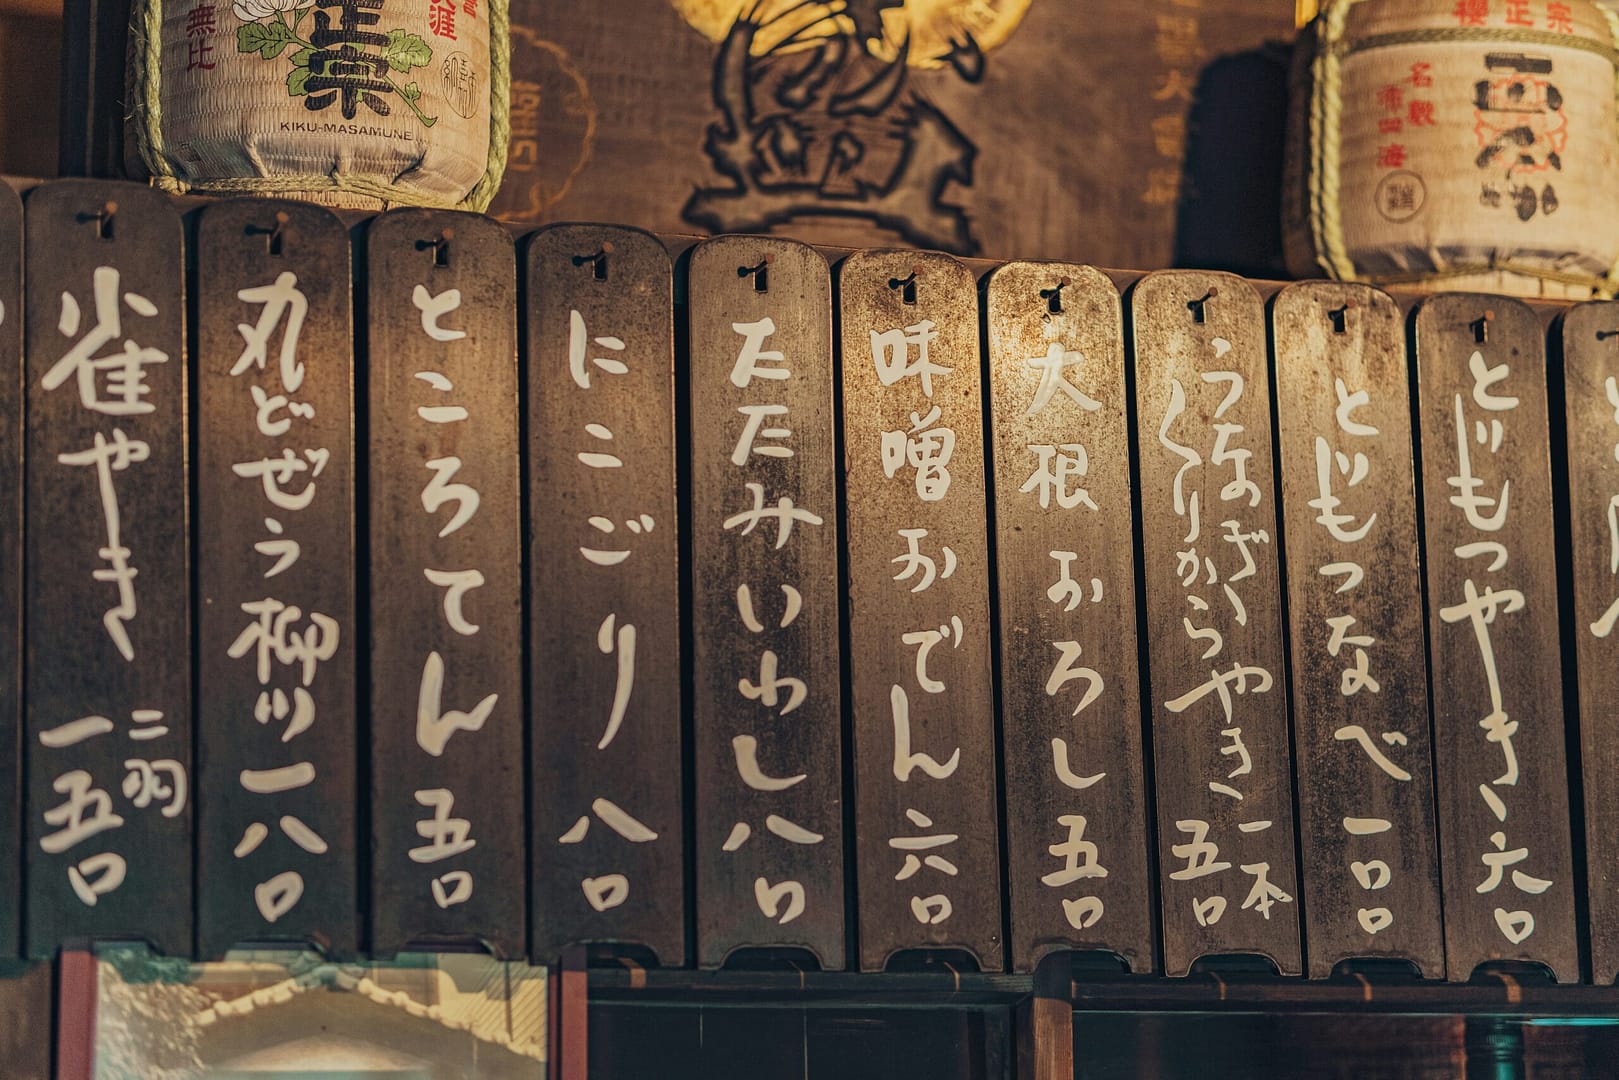 櫻正宗
正宗
正宗
無比
KIKU-MASAMUNE
とりもつやき、六〇
とりもつなべ 一〇〇
うなぎ、
くりからやき、一本
五〇
大根おろし 五〇
味噌おでん 六〇
たたみいわし 八〇
にこごり 八〇
ところてん 五〇
丸どぜう柳川 一八〇
雀やき 二羽
一五〇